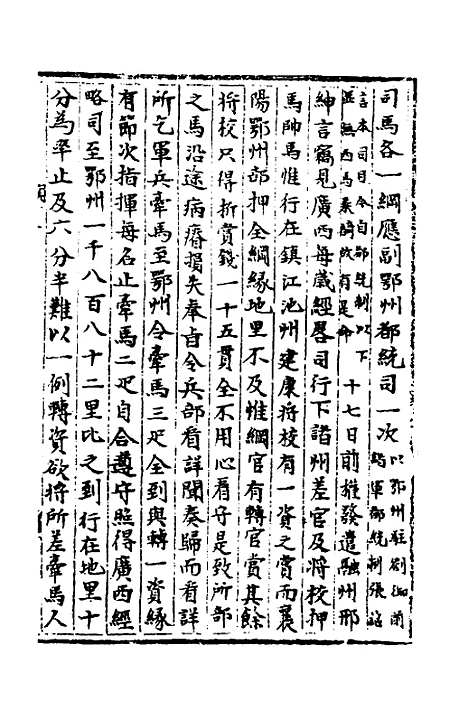 司馬各一綱應副鄂州都統司一次以鄂州駐劄御前諸軍都統制張詔
言本司目今自都統制以下並無西馬乘騎故有是命十七日前權發遣融州邢
紳言竊見廣西每歲經畧司行下諸州差官及將校押
馬帥馬惟行在鎮江池州建康將校有一資之賞而襄
陽鄂州部押全綱緣地里不及惟綱官有轉官賞其餘
將校只得折賞錢一十五貫全不用心看守是致所部
之馬沿途病瘠損失奉旨令兵部看詳聞奏歸而看詳
所乞軍兵牽馬至鄂州令牽馬三疋全到與轉一資緣
有節次指揮每名止牽馬二疋自合遵守照得廣西經
略司至鄂州一千八百八十二里比之到行在地里十
分為率止及六分半難以一例轉資欲將所差牽馬人